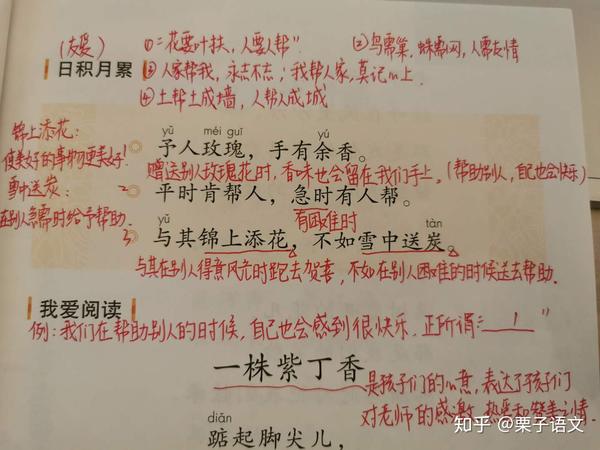 (友爱) ①"花要叶扶，人要人帮" ②鸟需巢，蛛需网，人需友情
日积月累 ③人家帮我，永志不忘；我帮人家，莫记心上
④土帮土成墙，人帮人成城
锦上添花：
使美好的事物更美好！
雪中送炭：
在别人急需时给予帮助.
yǔ méi guī yú
予人玫瑰，手有余香。
赠送别人玫瑰花时，香味也会留在我们手上。(帮助别人，自己也会快乐)
2 平时肯帮人，急时有人帮。
有困难时
yǔ tàn
3 与其锦上添花，不如雪中送炭。
与其在别人得意风光时跑去贺喜，不如在别人困难的时候送去帮助.
我爱阅读
例：我们在帮助别人的时候，自己也会感到很快乐，正所谓："1"
一株紫丁香
是孩子们的心意，表达了孩子们
对老师的感激、热爱和赞美之情.
diǎn
踮起脚尖儿，
知乎 @栗子语文